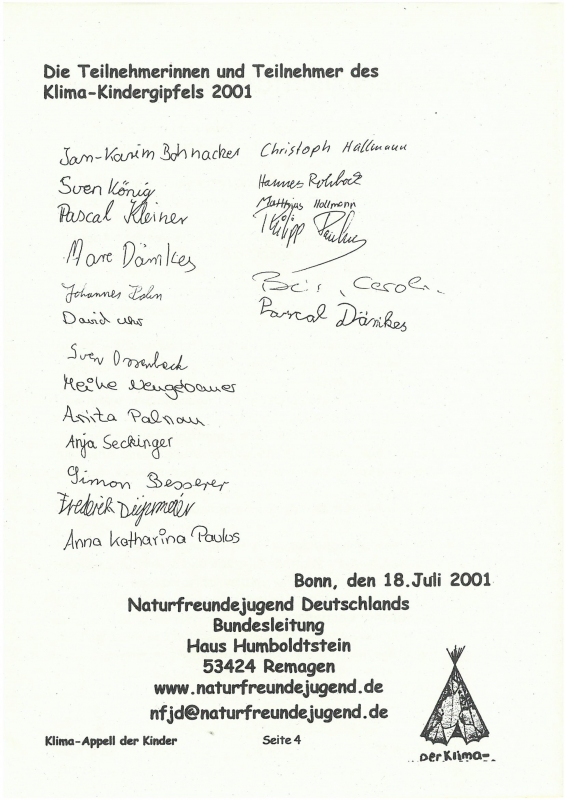 Die Teilnehmerinnen und Teilnehmer des
Klima-Kindergipfels 2001
Jan-Karim Bohnacker
Sven König
Pascal Kleiner
Marc Dämkes
Johannes
David
Sven Ossenbeck
Heike Neugebauer
Anita Palnau
Anja Seckinger
Simon Besserer
Frederik
Anna Katharina Paulus
Christoph Hallmann
Hannes
Matthias Hallmann
Philipp Paulus
Pascal Dämkes
Bonn, den 18.Juli 2001
Naturfreundejugend Deutschlands
Bundesleitung
Haus Humboldtstein
53424 Remagen
www.naturfreundejugend.de
nfjd@naturfreundejugend.de
Klima-Appell der Kinder
Seite 4
...Der Klima-..